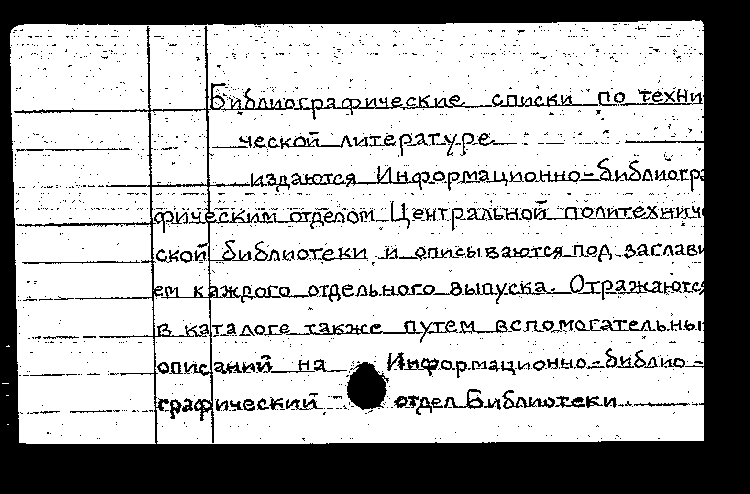 Библиографические списки по техни
ческой литературе
издаются Информационно-библиогра
фическим отделом Центральной политехниче
ской библиотеки и описываются под заглави
ем каждого отдельного выпуска. Отражаются
в каталоге также путем вспомогательны
описаний на Информационно-библио-
графический отдел Библиотеки.